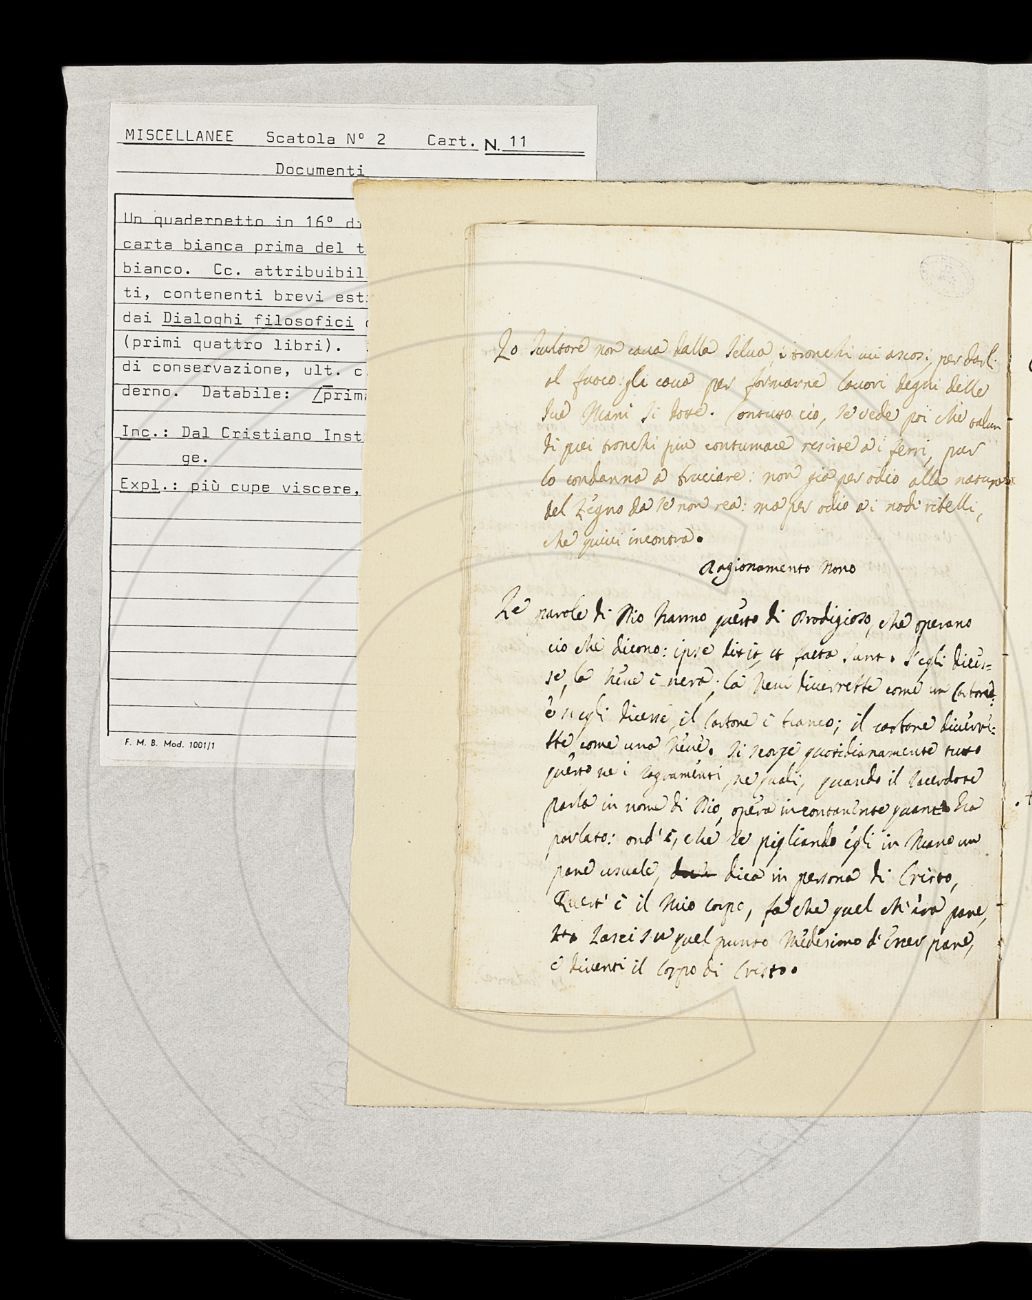 MISCELLANEE Scatola N° 2 Cart. N. 11
Documenti
Un quadernetto in 16° di
carta bianca prima del t
bianco. Cc. attribuibil
ti, contenenti brevi est
dai Dialoghi filosofici
(primi quattro libri).
di conservazione, ult. c
derno. Databile: /prim
Inc.: Dal Cristiano Inst
ge.
Expl.: più cupe viscere,
F. M. B. Mod. 1001/1
Lo Scultore non cava dalla Selva i tronchi ivi ascosi, per darli
al fuoco: gli cava per formarne lavori degni delle
sue Mani si dotte. Contutto ciò, se vede poi che talun
di quei tronchi più contumace resiste a i ferri, pur
lo condanna a bruciare: non già per odio alla natura
del Legno da se non rea: ma per odio a i nodi ribelli,
che quivi incontra.
Ragionamento Nono
Le parole di Dio hanno questo di Prodigioso, che operano
ciò che dicono: ipse dixit, et facta sunt. S'egli dices-
se, la Neve è nera; la Neve diverrebbe come un Carbone:
e s'egli dicesse, il Carbone è bianco; il carbone diverre-
bbe come una Neve. Si scorge quotidianamente tutto
questo ne i Sagramenti, ne quali, quando il Sacerdote
parla in nome di Dio, opera incontanente quanto ha
parlato: ond'è, che se pigliando egli in Mano un
pane usuale, dica in persona di Cristo,
Quest' è il Mio corpo, fa che quel ch'era pane,
lasci su quel punto Medesimo d'esser pane,
e diventi il Corpo di Cristo.